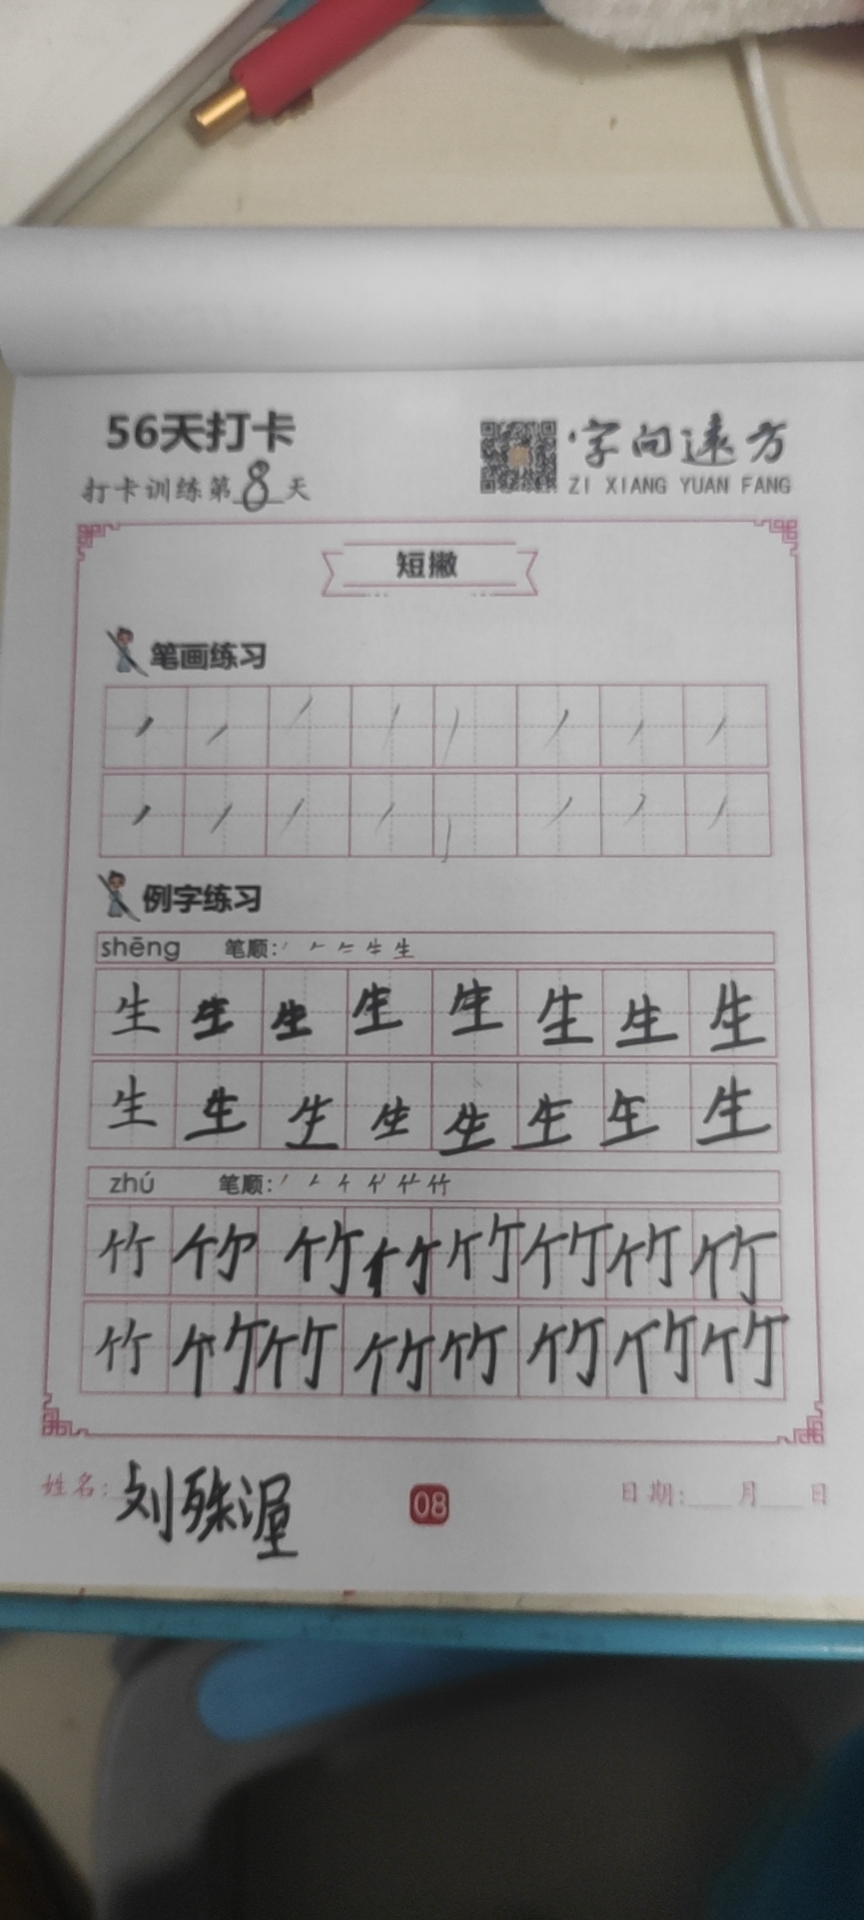 56天打卡
字向远方
打卡训练第8天
ZI XIANG YUAN FANG
短撇
笔画练习
例字练习
shēng 笔顺:
生 生 生 生 生 生 生 生
生 生 生 生 生 生 生 生
zhú 笔顺:
竹 竹 竹 竹 竹 竹 竹 竹
竹 竹 竹 竹 竹 竹 竹 竹
姓名: 刘殊渥
08
日期:___月___日